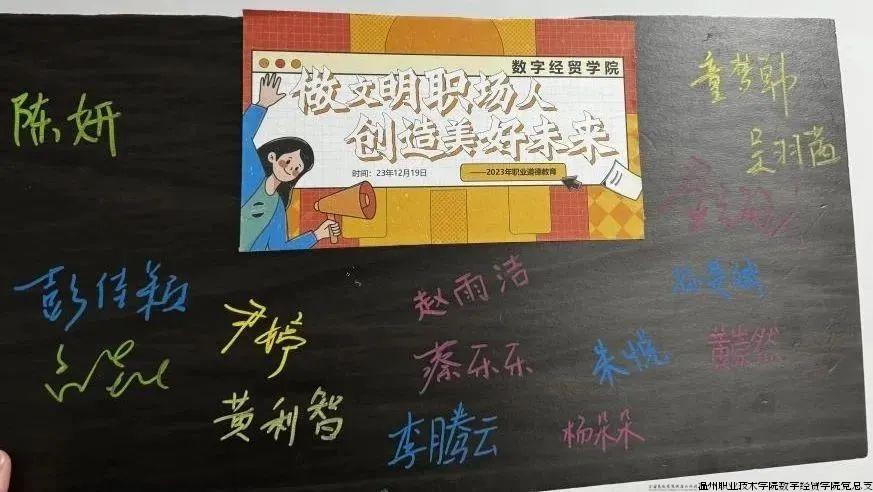 数字经贸学院
做文明职场人
创造美好未来
时间：23年12月19日
——2023年职业道德教育
陈妍
童梦韩
吴羽茜
彭佳颖
尹婷
赵雨洁
蔡乐乐
朱悦
黄黄利智
李腾云
杨朵朵
温州职业技术学院数字经贸学院党总支